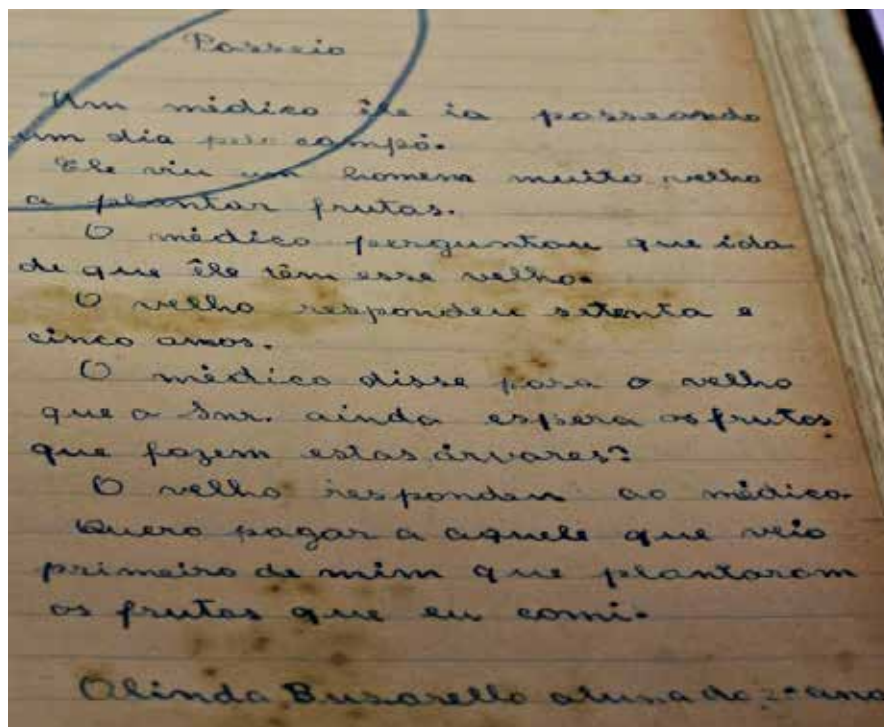 Passeio
Um médico êle ia passeando
um dia pelo campo.
Ele viu um homem muito velho
a plantar frutas.
O médico perguntou que ida
de que êle têm esse velho.
O velho respondeu setenta e
cinco anos.
O médico disse para o velho
que a Snr. ainda espera os frutos
que fazem estas árvares?
O velho respondeu ao médico.
Quero pagar a aquele que veio
primeiro de mim que plantaram
os frutas que eu comi.
Olinda Busarello aluna do 2º ano